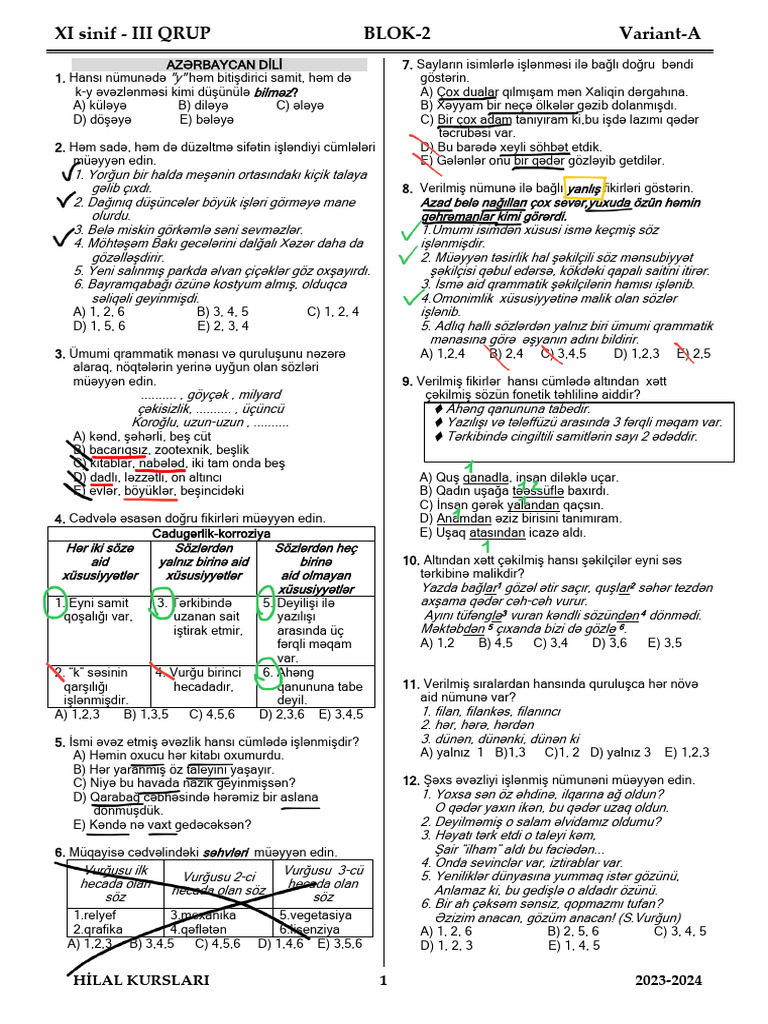 XI sinif - III QRUP BLOK-2 Variant-A
AZƏRBAYCAN DİLİ
1. Hansı nümunədə "y" həm bitişdirici samit, həm də
k-y əvəzlənməsi kimi düşünülə bilməz?
A) küləyə B) diləyə C) ələyə
D) döşəyə E) bələyə
2. Həm sadə, həm də düzəltmə sifətin işləndiyi cümlələri
müəyyən edin.
1. Yorğun bir halda meşənin ortasındakı kiçik talaya
gəlib çıxdı.
2. Dağınıq düşüncələr böyük işləri görməyə mane
olurdu.
3. Belə miskin görkəmlə səni sevməzlər.
4. Möhtəşəm Bakı gecələrini dalğalı Xəzər daha da
gözəlləşdirir.
5. Yeni salınmış parkda əlvan çiçəklər göz oxşayırdı.
6. Bayramqabağı özünə kostyum almış, olduqca
səliqəli geyinmişdi.
A) 1, 2, 6 B) 3, 4, 5 C) 1, 2, 4
D) 1, 5, 6 E) 2, 3, 4
3. Ümumi qrammatik mənası və quruluşunu nəzərə
alaraq, nöqtələrin yerinə uyğun olan sözləri
müəyyən edin.
.......... , göyçək , milyard
çəkisizlik, .......... , üçüncü
Koroğlu, uzun-uzun , ..........
A) kənd, şəhərli, beş cüt
B) bacarıqsız, zootexnik, beşlik
C) kitablar, nabələd, iki tam onda beş
D) dadlı, ləzzətli, on altıncı
E) evlər, böyüklər, beşincidəki
4. Cədvələ əsasən doğru fikirləri müəyyən edin.
Cadugərlik-korroziya
Hər iki sözə
aid
xüsusiyyətlər
Sözlərdən
yalnız birinə aid
xüsusiyyətlər
Sözlərdən heç
birinə
aid olmayan
xüsusiyyətlər
1. Eyni samit
qoşalığı var,
3. Tərkibində
uzanan sait
iştirak etmir,
5. Deyilişi ilə
yazılışı
arasında üç
fərqli məqam
var.
2. "k" səsinin
qarşılığı
işlənmişdir.
4. Vurğu birinci
hecadadır,
6. Ahəng
qanununa tabe
deyil.
A) 1,2,3 B) 1,3,5 C) 4,5,6 D) 2,3,6 E) 3,4,5
5. İsmi əvəz etmiş əvəzlik hansı cümlədə işlənmişdir?
A) Həmin oxucu hər kitabı oxumurdu.
B) Hər yaranmış öz taleyini yaşayır.
C) Niyə bu havada nazik geyinmişsən?
D) Qarabağ cəbhəsində hərəmiz bir aslana
dönmüşdük.
E) Kəndə nə vaxt gedəcəksən?
6. Müqayisə cədvəlindəki səhvləri müəyyən edin.
Vurğusu ilk
hecada olan
söz
Vurğusu 2-ci
hecada olan söz
Vurğusu 3-cü
hecada olan
söz
1.relyef
2.qrafika
3.mexanika
4.qəflətən
5.vegetasiya
6.lisenziya
A) 1,2,3 B) 3,4,5 C) 4,5,6 D) 1,4,6 E) 3,5,6
7. Sayların isimlərlə işlənməsi ilə bağlı doğru bəndi
göstərin.
A) Çox dualar qılmışam mən Xaliqin dərgahına.
B) Xəyyam bir neçə ölkələr gəzib dolanmışdı.
C) Bir çox adam tanıyıram ki,bu işdə lazımı qədər
təcrübəsi var.
D) Bu barədə xeyli söhbət etdik.
E) Gələnlər onu bir qədər gözləyib getdilər.
8. Verilmiş nümunə ilə bağlı yanlış fikirləri göstərin.
Azad belə nağılları çox sevər,yuxuda özün həmin
qəhrəmanlar kimi görərdi.
1.Ümumi isimdən xüsusi ismə keçmiş söz
işlənmişdir.
2. Müəyyən təsirlik hal şəkilçili söz mənsubiyyət
şəkilçisi qəbul edərsə, kökdəki qapalı saitini itirər.
3. İsmə aid qrammatik şəkilçilərin hamısı işlənib.
4.Omonimlik xüsusiyyətinə malik olan sözlər
işlənib.
5. Adlıq hallı sözlərdən yalnız biri ümumi qrammatik
mənasına görə əşyanın adını bildirir.
A) 1,2,4 B) 2,4 C) 3,4,5 D) 1,2,3 E) 2,5
9. Verilmiş fikirlər hansı cümlədə altından xətt
çəkilmiş sözün fonetik təhlilinə aiddir?
♦ Ahəng qanununa tabedir.
♦ Yazılışı və tələffüzü arasında 3 fərqli məqam var.
♦ Tərkibində cingiltili samitlərin sayı 2 ədəddir.
1
A) Quş qanadla, insan diləklə uçar.
1 2
B) Qadın uşağa təəssüflə baxırdı.
1
C) İnsan gərək yalandan qaçsın.
1
D) Anamdan əziz birisini tanımıram.
E) Uşaq atasından icazə aldı.
1
10. Altından xətt çəkilmiş hansı şəkilçilər eyni səs
tərkibinə malikdir?
Yazda bağlar¹ gözəl ətir saçır, quşlar² səhər tezdən
axşama qədər cəh-cəh vurur.
Ayını tüfənglə³ vuran kəndli sözündən⁴ dönmədi.
Məktəbdən⁵ çıxanda bizi də gözlə⁶.
A) 1,2 B) 4,5 C) 3,4 D) 3,6 E) 3,5
11. Verilmiş sıralardan hansında quruluşca hər növə
aid nümunə var?
1. filan, filankəs, filanıncı
2. hər, hərə, hərdən
3. dünən, dünənki, dünən ki
A) yalnız 1 B)1,3 C)1, 2 D) yalnız 3 E) 1,2,3
12. Şəxs əvəzliyi işlənmiş nümunəni müəyyən edin.
1. Yoxsa sən öz əhdinə, ilqarına ağ oldun?
O qədər yaxın ikən, bu qədər uzaq oldun.
2. Deyilməmiş o salam əlvidamız oldumu?
3. Həyatı tərk etdi o taleyi kəm,
Şair "ilham" aldı bu faciədən...
4. Onda sevinclər var, iztirablar var.
5. Yeniliklər dünyasına yummaq istər gözünü,
Anlamaz ki, bu gedişlə o aldadır özünü.
6. Bir ah çəksəm sənsiz, qopmazmı tufan?
Əzizim anacan, gözüm anacan! (S.Vurğun)
A) 1, 2, 6 B) 2, 5, 6 C) 3, 4, 5
D) 1, 2, 3 E) 1, 4, 5
HİLAL KURSLARI 1 2023-2024